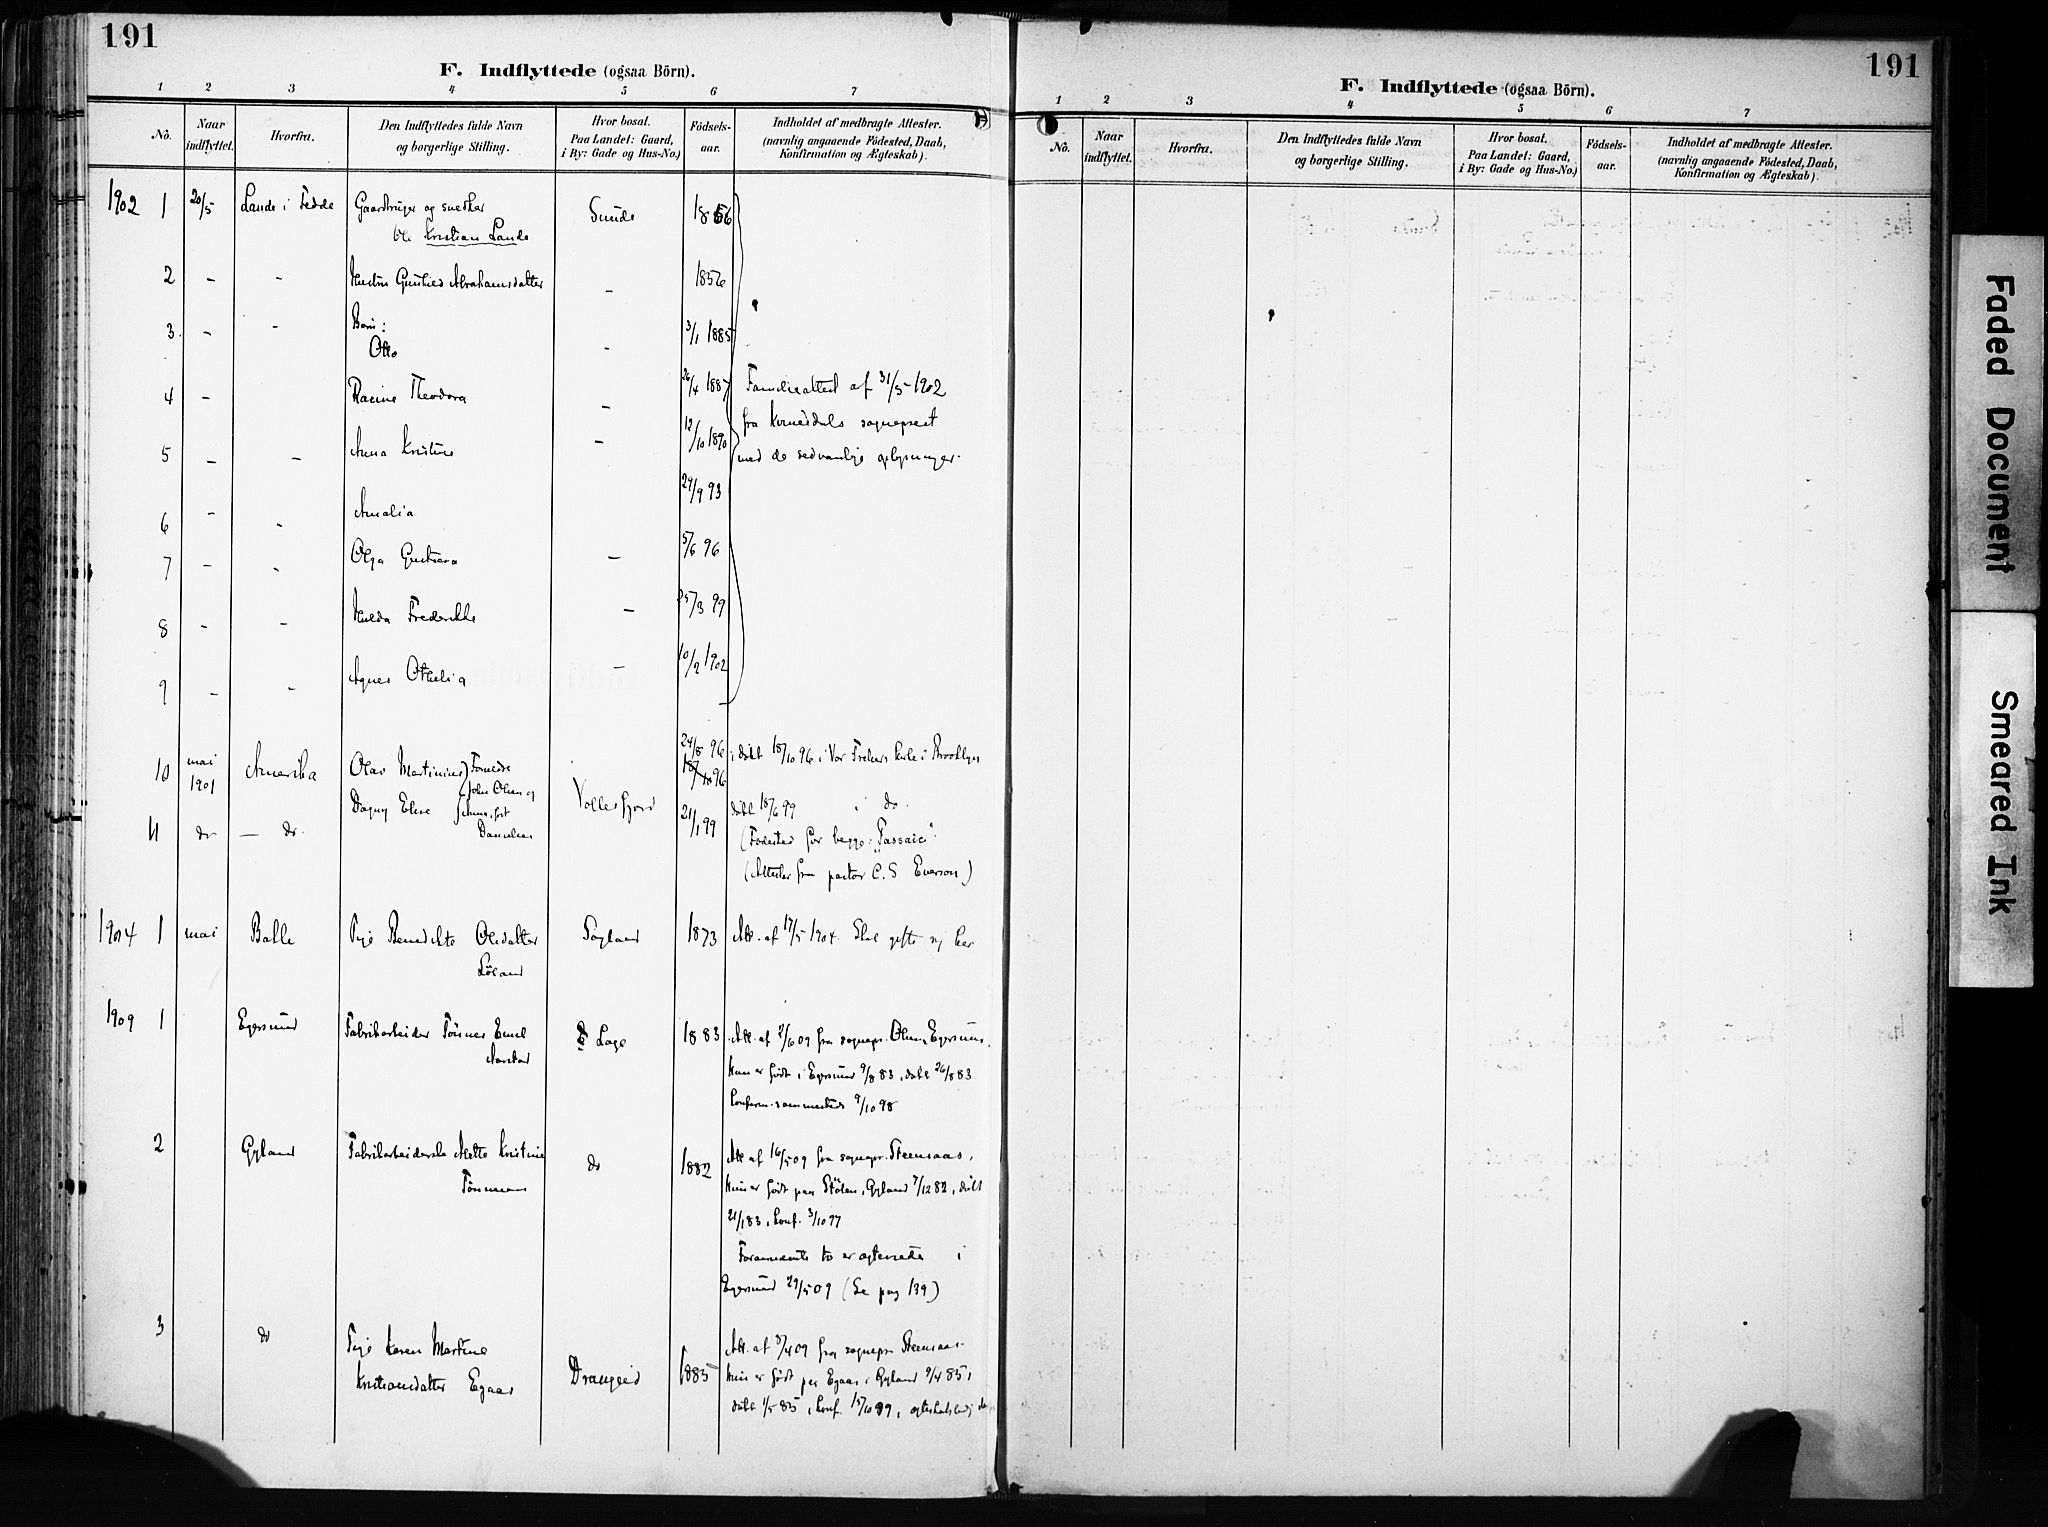 191
F. Indflyttede (ogsaa Börn).
1 2 3 4 5 6 7
Nò. Naar indflyttet. Hvorfra. Den Indflyttedes fulde Navn og borgerlige Stilling. Hvor bosat. Paa Landet: Gaard, i By: Gade og Hus-No.) Födsels-aar. Indholdet af medbragte Attester. (navnlig angaaende Födested, Daab, Konfirmation og Ægteskab).
1902 1 20/5 Lande i Fedde Gaardbruger og snedker Sunde 1856
Ole Kristian Lande
2 - - Hustru Gunhild Abrahamsdatter - 1856
3. - - Børn: 3/1 1885
Otto -
4 - Racine Theodora - 26/4 1887 Familieattest af 31/5-1902
fra Kvinesdals sogneprest
5 - - Anna Kristine - 12/10 1890 med de sedvanlige oplysninger.
6 - - Amalia 29/9 93
7 - - Olga Gustava - 5/6 96
8 - - Hulda Fredrikke - 25/3 99
9 - - Agnes Othelia - 10/2 1902
10 mai 1901 Amerika Olav Martinius Forældre 24/8 96 døbt 18/10 96 i Vor Frelsers kirke i Brooklyn
18/10 96
John Olsen og
11 do - do. Dagny Elise Vollesfjord 21/1 99 døbt 18/6 99 i do.
Danielsen
(Fødested for begge: "Passaic".
(Attester fra pastor C. S Everson)
1904 1 mai Bakke Pige Benedikte Olsdatter Søyland 1873 Att. af 17/5 1904. Skal gifte sig her
Løland
1909 1 Egersund Fabrikarbeider Tønnes Emil Lage 1883 Att. af 2/6 09 fra sognepr. Olsen, Egersund.
Aarstad
Han er født i Egersund 9/8 83, døbt 26/8 83
konfirm. sammesteds 9/10 98
2 Gyland Fabrikarbeiderske Mette Kristine do 1882 Att af 16/5 09 fra sognepr. Steensaas,
Tønnesen
Hun er født paa Stölen, Gyland 7/12 82, døbt
21/1 83, konf. 3/10 97
Forannævnte to er ægteviede i
Egersund 29/5 09 (Se pag 139)
3 do Pige Karen Martine Drangeid 1885 Att. af 3/4 09 fra sognepr Steensaas.
Kristiansdatter Egaas
Hun er født paa Egaas i Gyland 9/4 85,
døbt 1/5 85, konf. 15/10 99,
191
F. Indflyttede (ogsaa Börn).
1 2 3 4 5 6 7
Nò. Naar indflyttet. Hvorfra. Den Indflyttedes fulde Navn og borgerlige Stilling. Hvor bosat. Paa Landet: Gaard, i By: Gade og Hus-No.) Födsels-aar. Indholdet af medbragte Attester. (navnlig angaaende Födested, Daab, Konfirmation og Ægteskab).
Faded Document
Smeared Ink